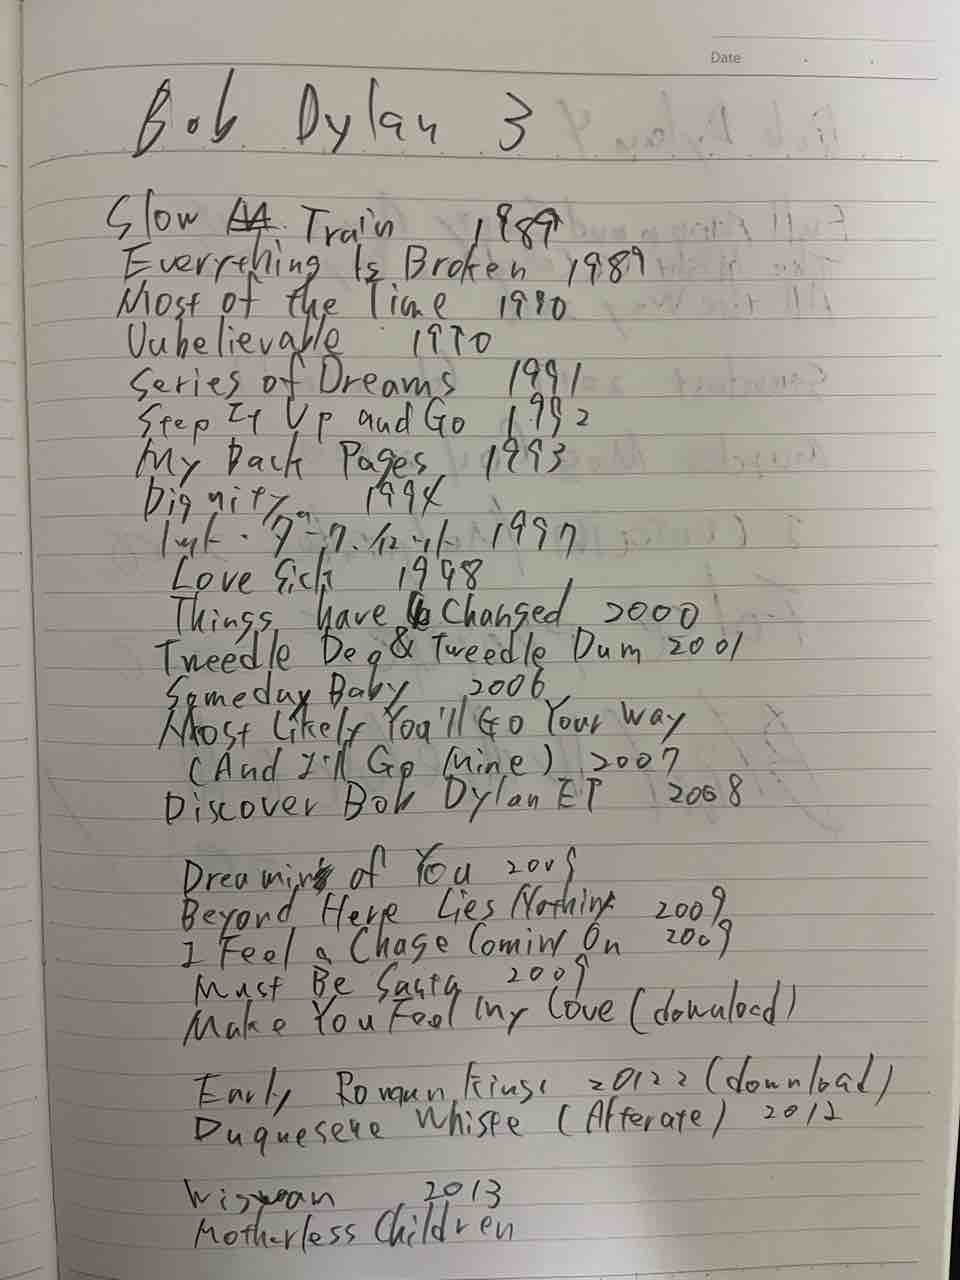 Date
Bob Dylan 3
Slow Train 1989
Everything Is Broken 1989
Most of the Time 1990
Unbelievable 1990
Series of Dreams 1991
Step It Up and Go 1992
My Back Pages 1993
Dignity 1994
1997
Love Sick 1998
Things have Changed 2000
Tweedle Dee & Tweedle Dum 2001
Someday Baby 2006
Most Likely You'll Go Your Way
(And I'll Go Mine) 2007
Discover Bob Dylan EP 2008
Dreamin of You 2009
Beyond Here Lies Nothin 2009
I Feel a Chage Comin On 2009
Must Be Santa 2009
Make You Feel My Love (download)
Early Roman Kings 20122 (download)
Duquesene Whispe (Alterate) 2012
2013
Motherless Children